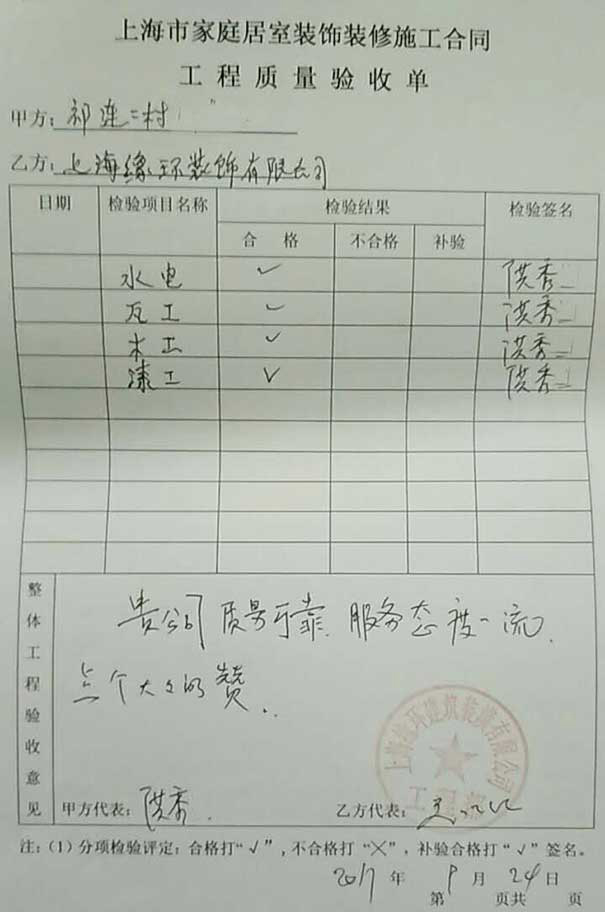 上海市家庭居室装饰装修施工合同
工程质量验收单
甲方：祁连二村
乙方：上海缘环装饰有限公司
日期 检验项目名称 检验结果 检验签名
合格 不合格 补验
水电 ✓ 洪秀
瓦工 ✓ 洪秀
木工 ✓ 洪秀
漆工 ✓ 洪秀
整体工程验收意见
贵公司质量可靠.服务态度一流.
点个大大的赞..
上海缘环建筑装潢有限公司
甲方代表：洪秀. 乙方代表：
注：(1)分项检验评定：合格打“√”，不合格打“╳”，补验合格打“√”签名。
2017年9月24日
第 页共 页